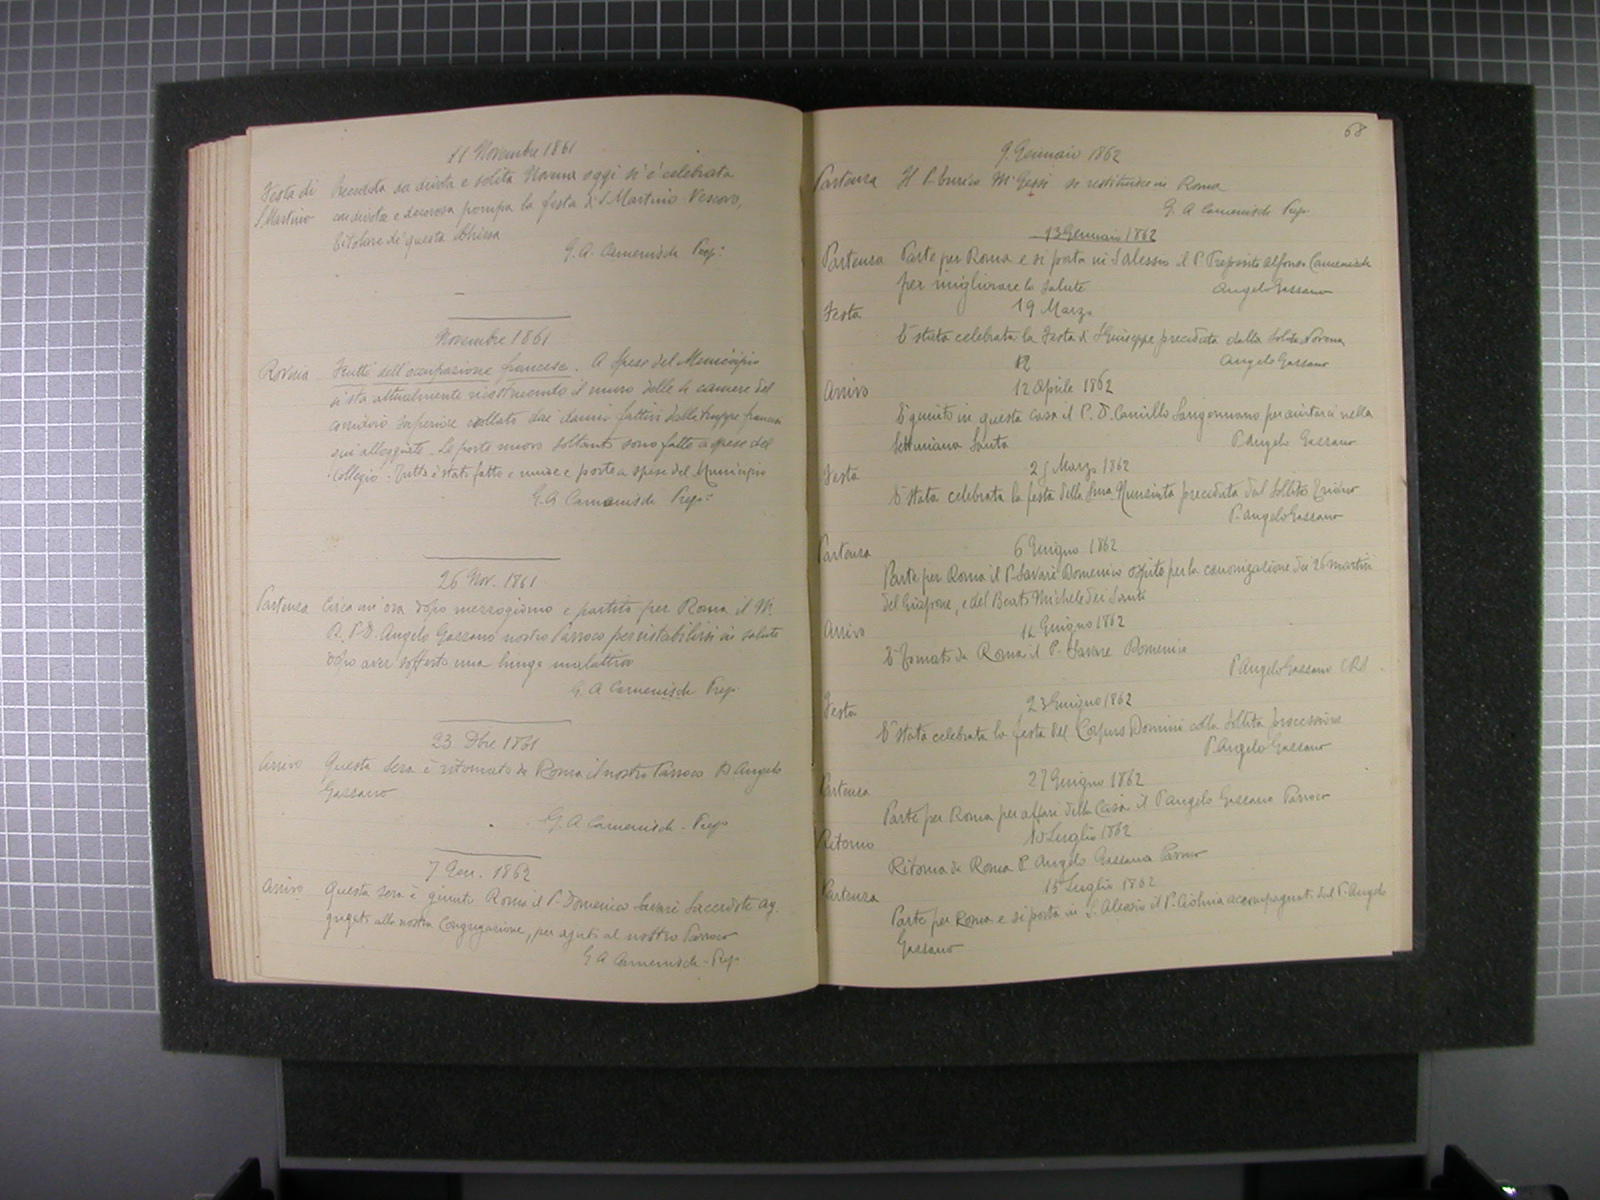 11 Novembre 1861
Festa di Preceduta da divota e solita Novena oggi si è celebrata
S. Martino con divota e decorosa pompa la festa di S. Martino Vescovo,
titolare di questa Chiesa
G. A. Camenisch Prep:
Novembre 1861
Rovina Frutti dell'occupazione francese. A spese del Municipio
si sta attualmente ricostruendo il muro delle 4 camere del
corridoio superiore crollato dai danni fattivi dalle truppe francesi
qui alloggiate. Le porte nuove soltanto sono fatte a spese del
Collegio. Tutto è stato fatto e muro e porte a spese del Municipio
G. A. Camenisch Prep:
26 Nov. 1861
Partenza Circa un'ora dopo mezzogiorno è partito per Roma il M.
R. P. D. Angelo Gassano nostro Parroco per ristabilirsi in salute
dopo aver sofferto una lunga malattia
G. A Camenisch Prep.
23 Dbre 1861
Arrivo Questa sera è ritornato da Roma il nostro Parroco D. Angelo
Gassano
G. A Camenisch - Prep
7 Gen. 1862
Arrivo Questa sera è giunto Roma il P. Domenico Savarè Sacerdote ag.
gregato alla nostra Congregazione, per ajuto al nostro Parroco
G A Camenisch - Prep.
68
9. Gennaio 1862
Partenza Il P. Gessi se restituisce in Roma
G. A Camenisch Prep.
13 Gennaio 1862
Partenza Parte per Roma e si porta in S Alessio il P. Preposito Alfonso Camenisch
per migliorare la salute Angelo Gassano
Festa 19 Marzo
È stata celebrata la Festa di S Giuseppe preceduta dalla solita Novena
12 Angelo Gassano
Arrivo 12 Aprile 1862
È giunto in questa casa il P. D. Camillo per aiutarci nella
Settimana Santa P. Angelo Gassano
Festa 25 Marzo 1862
È stata celebrata la festa della Sma Nunziata preceduta dal sollito Triduo
P. Angelo Gassano
Partenza 6 Giugno 1862
Parte per Roma il P. Savarè Domenico ospite per la canonizazione dei 26 martiri
del Giappone, e del Beato Michele dei Santi
Arrivo 12 Giugno 1862
È tornato da Roma il P. Savare Domenico
P. Angelo Gassano CRS.
Festa 23 Giugno 1862
È stata celebrata la festa del Corpus Domini colla sollita processione
P. Angelo Gassano
Partenza 27 Giugno 1862
Parte per Roma per affari della Casa il P Angelo Gassano Parroco
Ritorno 10 Luglio 1862
Ritorna da Roma P. Angelo Gassano Parroco
Partenza 15 Luglio 1862
Parte per Roma e si porta in S. Alessio il P. accompagnato dal P. Angelo
Gassano